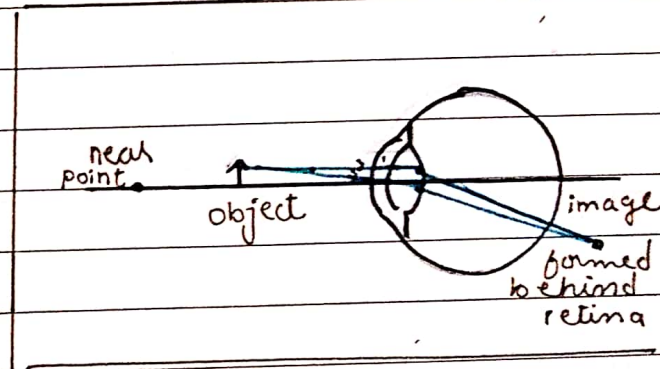 near
point
object
image
formed
behind
retina